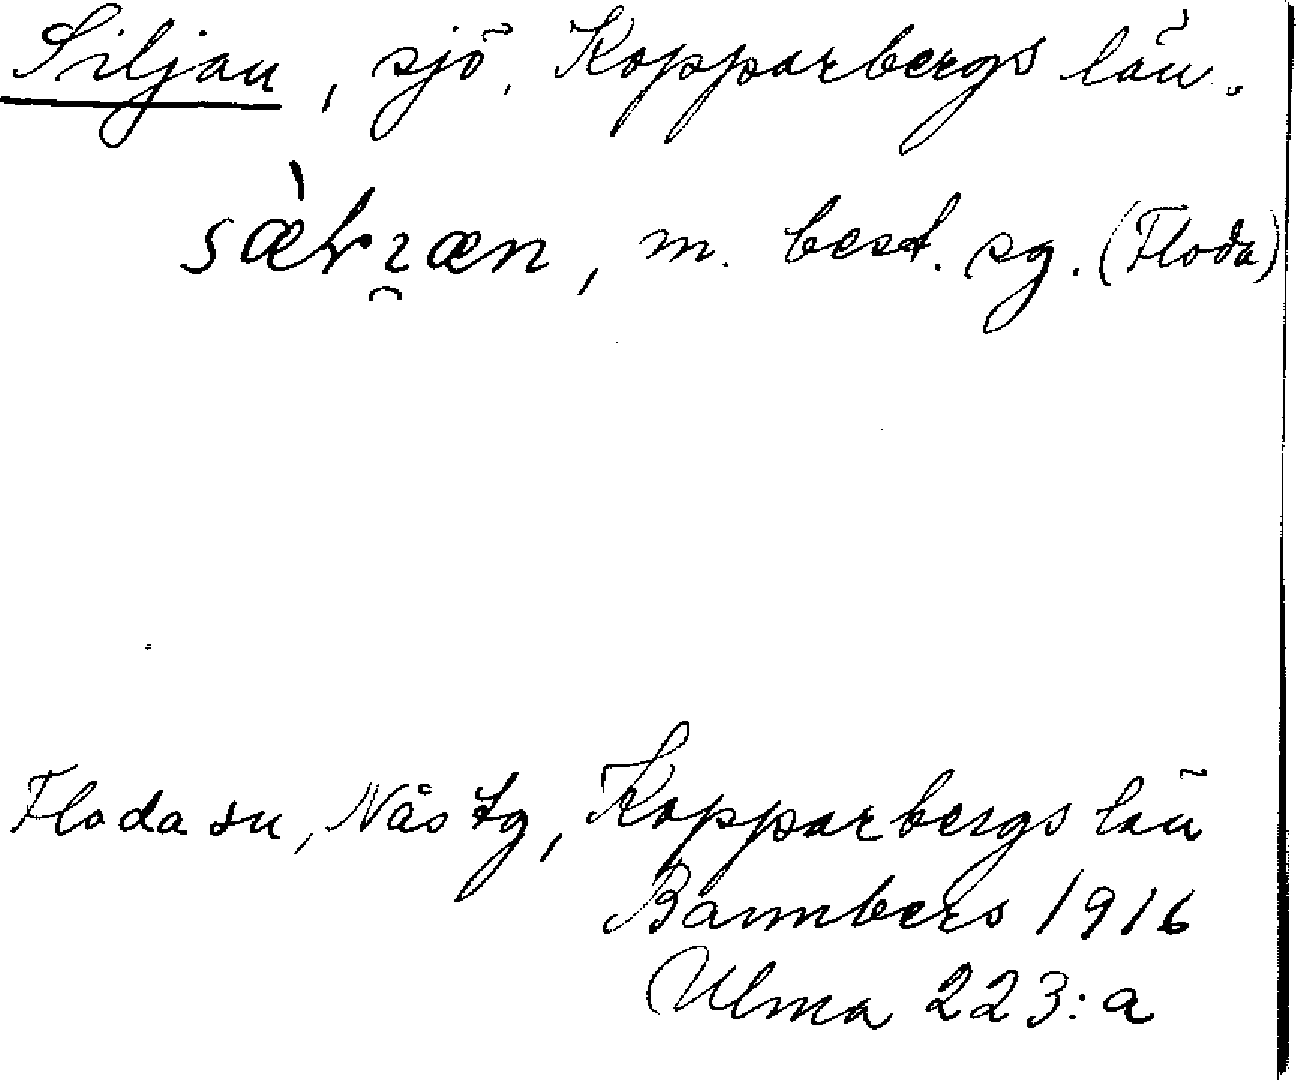 Siljan, sjö, Kopparbergs län.
m. best. sg. (Floda)
Floda sn, Nås tg, Kopparbergs län
Bannbers 1916
Ulma 223:a